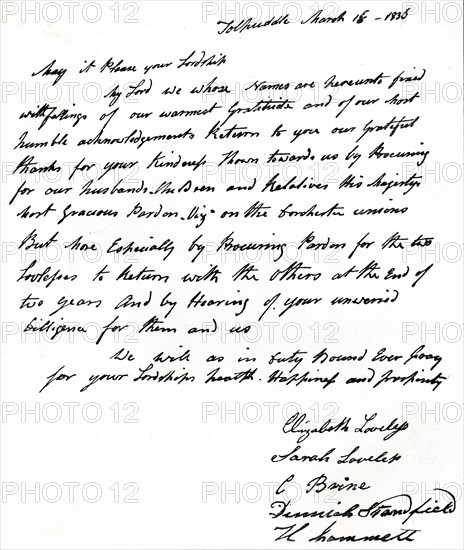 Tolpuddle March 18 - 1836
May it Please your Lordship
My Lord we whose Names are hereunto fixed
with feelings of our warmest Gratitude and of our most
humble acknowledgements Return to you our Grateful
thanks for your Kindness Shown towards us by Procuring
for our husbands Children and Relatives His Majestys
Most Gracious Pardon Viz on the Dorchester unions
But More Especially by Procuring Pardon for the two
Lovlesses to Return with the Others at the End of
two years And by Hearing of your unweried
Dilligence for them and us
We will as in Duty Bound Ever Pray
for your Lordships health. Happiness and prosperity
Elizabeth Loveless
Sarah Loveless
C Brine
Dinniah Standfield
H Hammett
PHOTO 12